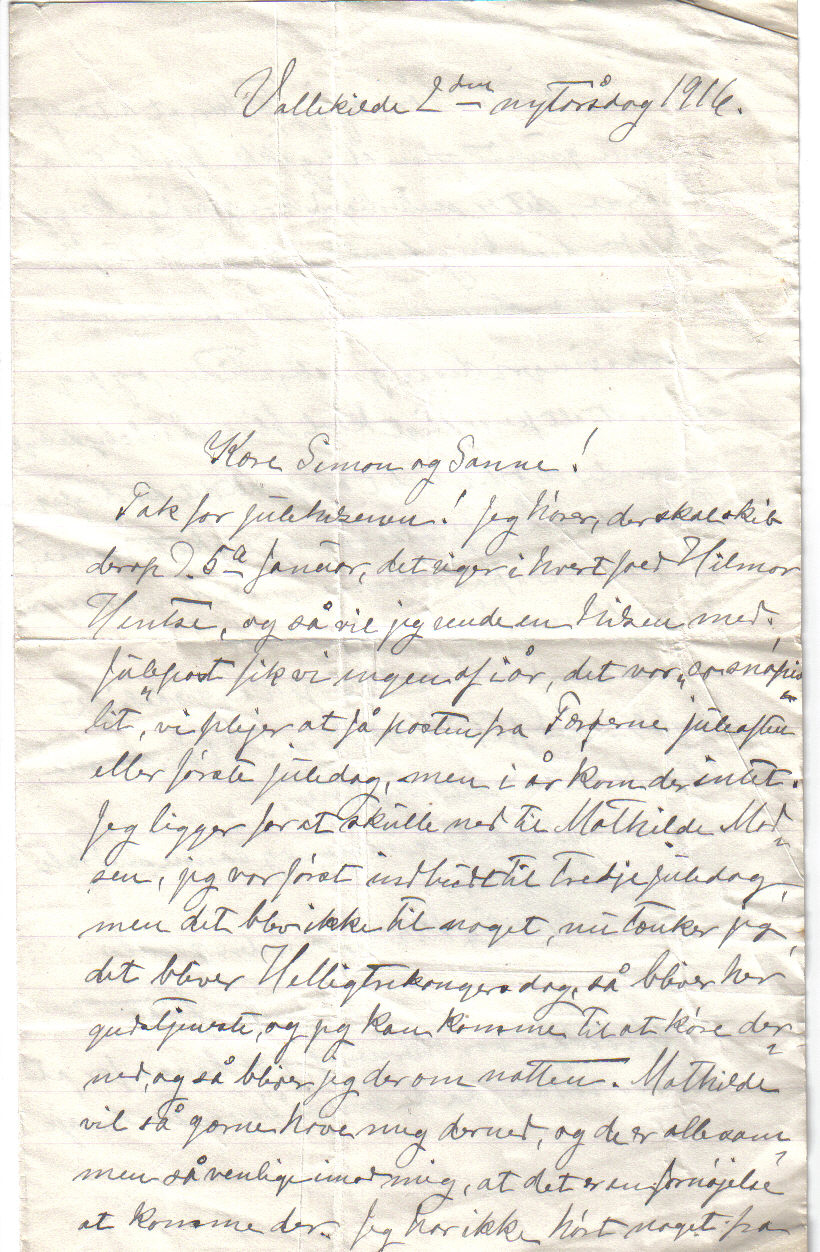 Vallekilde 2den nytårsdag 1916.
Kære Simon og Sanne!
Tak for julehilsenen! Jeg hører, der skal skib
derop d. 5te Januar, det siger i hvert fald Hilmar
Hentse, og så vil jeg sende en hilsen med.
Julepost fik vi ingen af i år, det var „so snápis-
lit“, vi plejer at få posten fra Færøerne juleaften
eller første juledag, men i år kom der intet.
Jeg ligger for at skulle ned til Mathilde Mad-
sen, jeg var først indbudt til tredje juledag,
men det blev ikke til noget, nu tænker jeg,
det bliver Helligtrekongersdag, så bliver her
gudstjeneste, og jeg kan komme til at køre der-
ned, og så bliver jeg der om natten. Mathilde
vil så gærne have mig derned, og de er allesam-
men så venlige imod mig, at det er en fornøjelse
at komme der. Jeg har ikke hørt noget fra